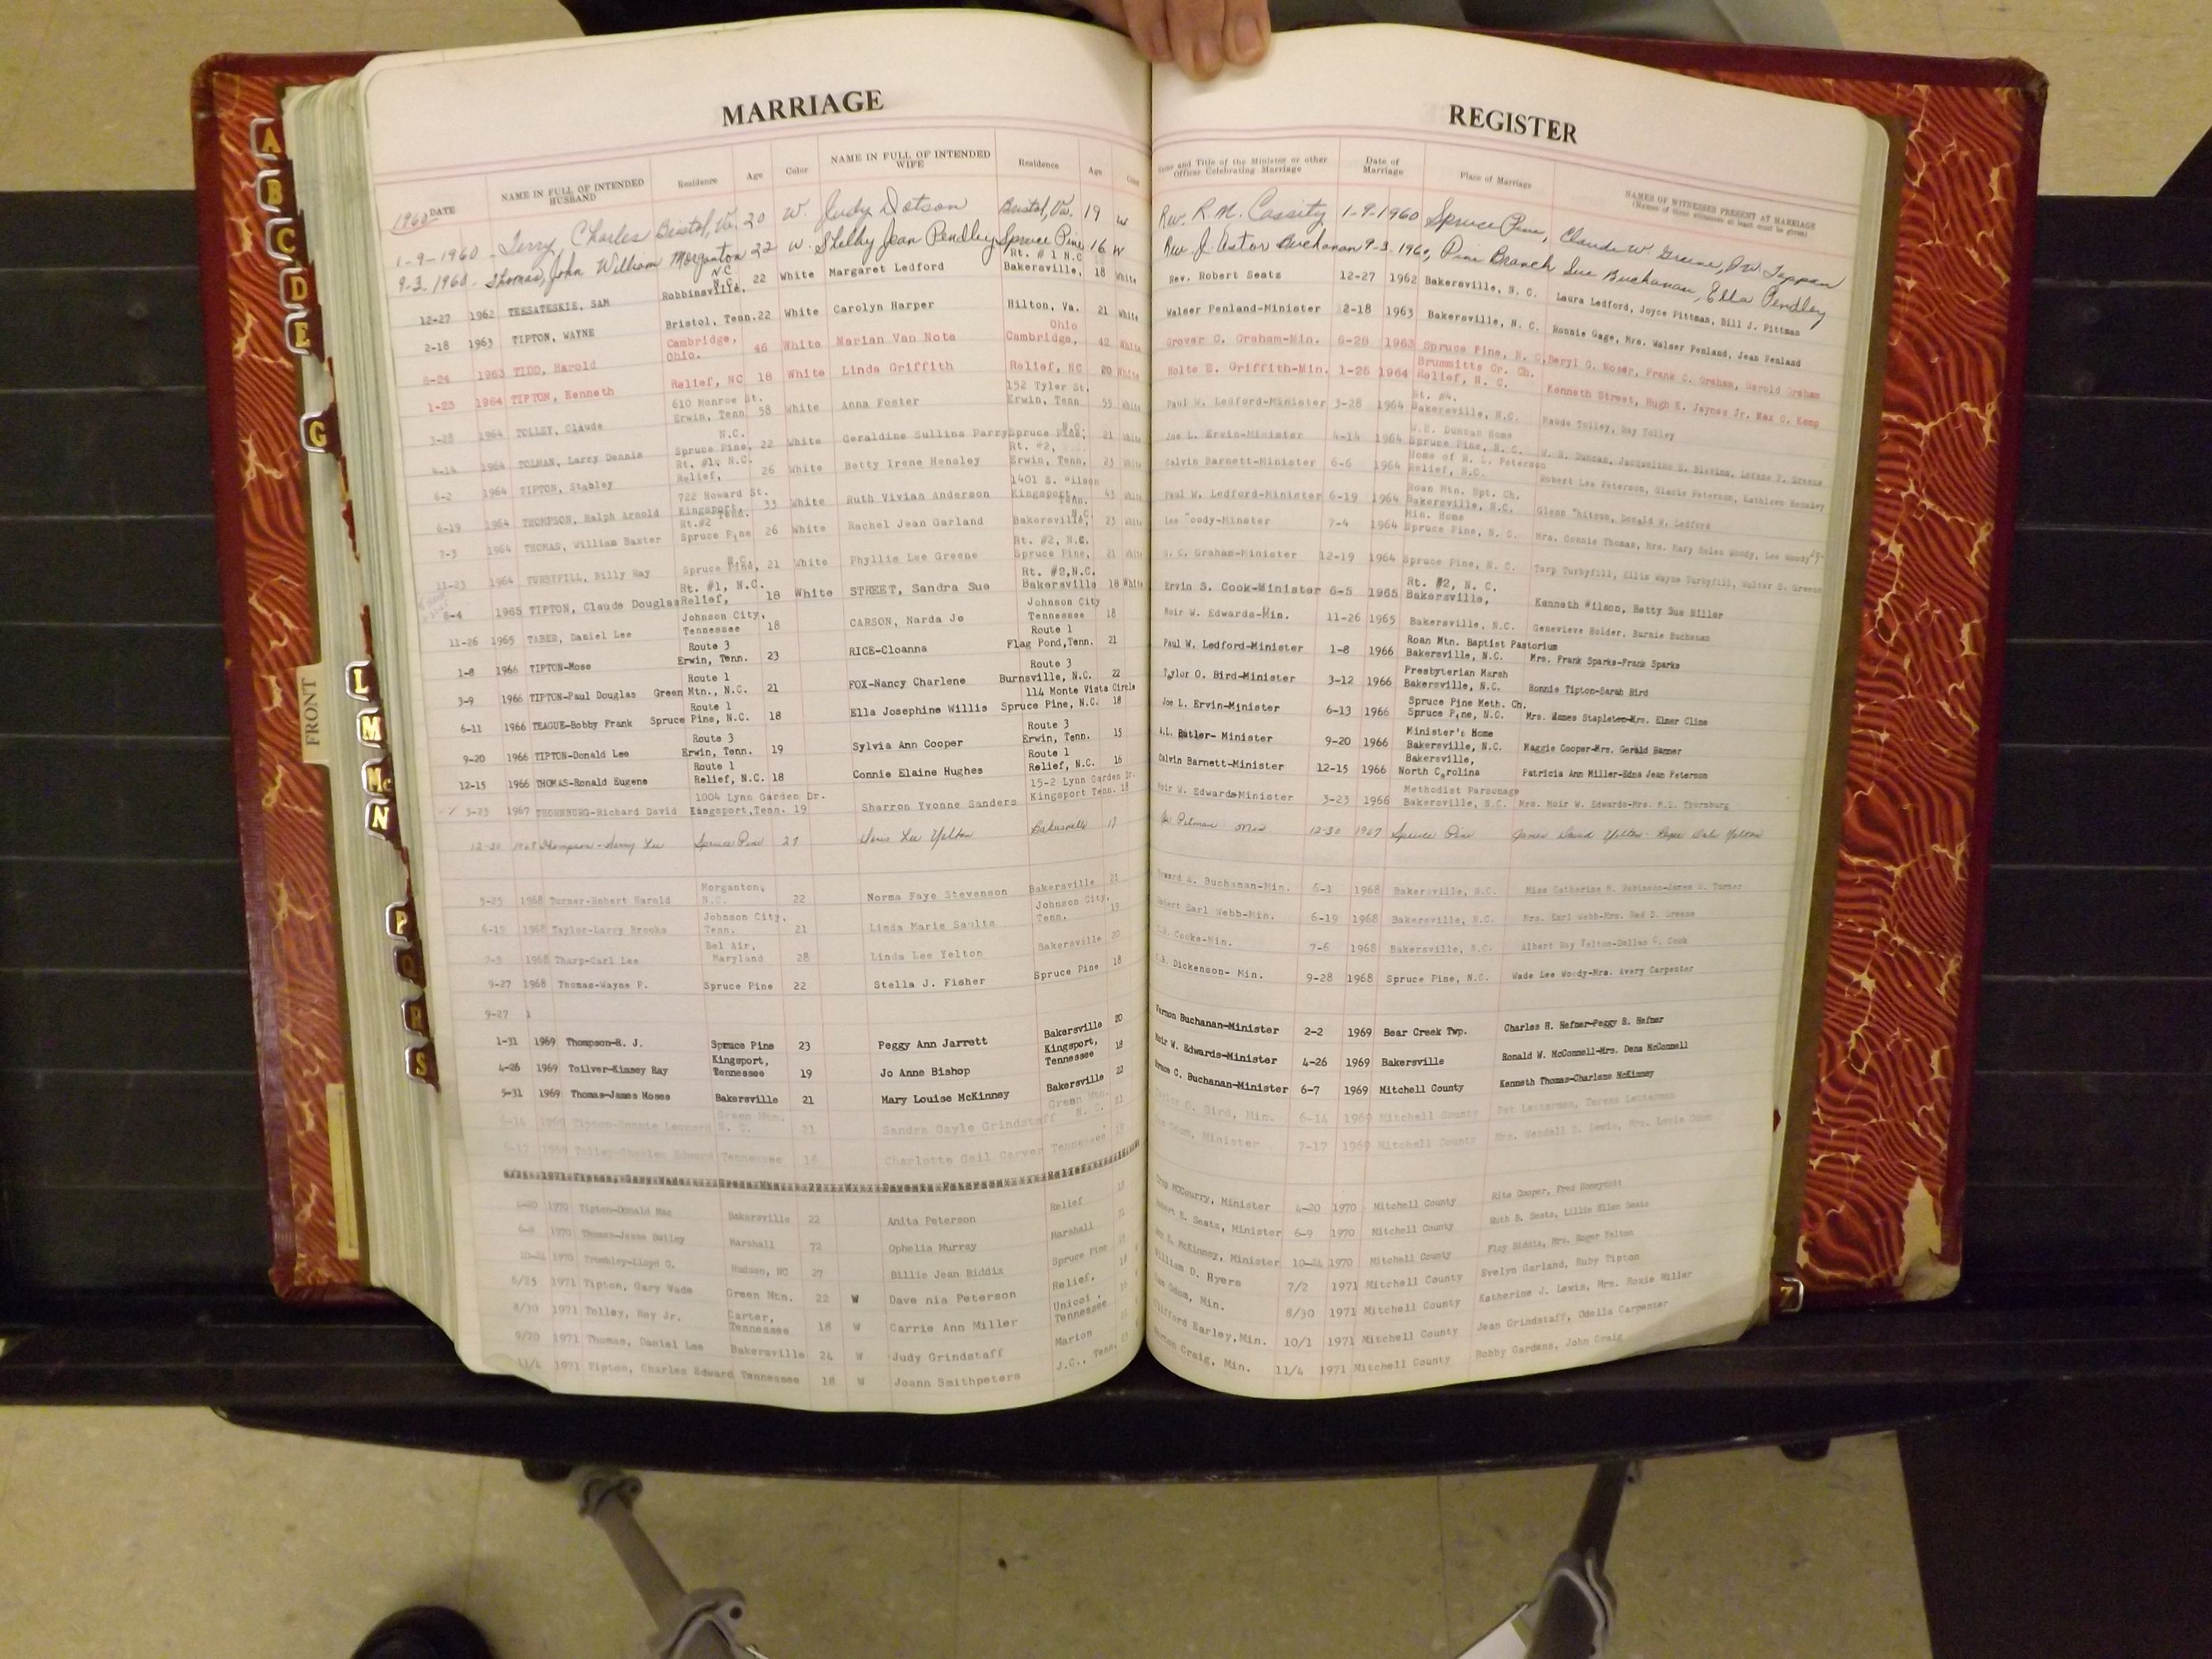 MARRIAGE
REGISTER
DATE NAME IN FULL OF INTENDED HUSBAND Residence Age Color NAME IN FULL OF INTENDED WIFE Residence Age Color
Name and Title of the Minister or other Officer Celebrating Marriage Date of Marriage Place of Marriage NAMES OF WITNESSES PRESENT AT MARRIAGE
(Names of three witnesses at least must be given)
1960
1-9-1960 Terry, Charles Bristol, Va. 20 W. Judy Dotson Bristol, Va. 19 W Rev. R. M. Cassity 1-9-1960 Spruce Pine, Claude W. Greene,
9-3-1960 Thomas, John William Morganton N.C. 22 W. Shelby Jean Pendley Spruce Pine 16 W Rev. J. Astor Buchanan 9-3-1960, Pine Branch Sue Buchanan, Ella Pendley
12-27 1962 TEESATESKIE, SAM Robbinsville, N.C. 22 White Margaret Ledford Rt. # 1 N.C Bakersville, 18 White Rev. Robert Seats 12-27 1962 Bakersville, N. C. Laura Ledford, Joyce Pittman, Bill J. Pittman
2-18 1963 TIPTON, WAYNE Bristol, Tenn. 22 White Carolyn Harper Hilton, Va. 21 White Walser Penland-Minister 2-18 1963 Bakersville, N. C. Ronnie Gage, Mrs. Walser Penland, Jean Penland
6-24 1963 TIDD, Harold Cambridge, Ohio. 46 White Marian Van Note Ohio Cambridge, 42 White Grover C. Graham-Min. 6-28 1963 Spruce Pine, N. C. Beryl G. Moser, Frank C. Graham, Harold Graham
1-23 1964 TIPTON, Kenneth Relief, NC 18 White Linda Griffith Relief, NC 20 White Holte E. Griffith-Min. 1-26 1964 Brummitts Cr. Ch. Relief, N. C. Kenneth Street, Hugh K. Jaynes Jr. Max C. Kemp
3-28 1964 TOLLEY, Claude 610 Monroe St. Erwin, Tenn 58 White Anna Foster 152 Tyler St. Erwin, Tenn 55 White Paul W. Ledford-Minister 3-28 1964 Rt. #4. Bakersville, N.C. Maude Tolley, May Tolley
4-14 1964 TOLMAN, Larry Dennis N.C. Spruce Pine, 22 White Geraldine Sullins Parry Spruce Pine, N.C. 21 White Joe L. Ervin-Minister 4-14 1964 W.H. Duncan Home Spruce Pine, N. C. W. H. Duncan, Jacqueline S. Blevins, Lorene P. Greene
6-2 1964 TIPTON, Stabley Rt. #1, N.C. Relief, 26 White Betty Irene Hensley Rt. #2, Erwin, Tenn. 23 White Calvin Barnett-Minister 6-6 1964 Home of R. L. Peterson Relief, N.C. Robert Lee Peterson, Gladis Peterson, Kathleen Hensley
6-19 1964 THOMPSON, Ralph Arnold 722 Howard St. Kingsport, Tenn. 33 White Ruth Vivian Anderson 1401 S. Wilson Kingsport Tenn. 43 White Paul W. Ledford-Minister 6-19 1964 Roan Mtn. Bpt. Ch. Bakersville, N.C. Glenn Whitson, Donald W. Ledford
7-3 1964 THOMAS, William Baxter Rt.#2 Spruce Pine 26 White Rachel Jean Garland N.C. Bakersville, 23 White Lee Woody-Minster 7-4 1964 Min. Home Spruce Pine, N. C. Mrs. Connie Thomas, Mrs. Mary Helen Woody, Lee Woody
11-23 1964 TURBYFILL, Billy Ray Spruce Pine, N.C. 21 White Phyllis Lee Greene Rt. #2, N.C. Spruce Pine, 21 White G. C. Graham-Minister 12-19 1964 Spruce Pine, N. C. Tarp Turbyfill, Ellis Wayne Turbyfill, Walter S. Greene
6-4 1965 TIPTON, Claude Douglas Rt. #1, N.C. Relief, 18 White STREET, Sandra Sue Rt. #2,N.C. Bakersville 18 White Ervin S. Cook-Minister 6-5 1965 Rt. #2, N. C. Bakersville, Kenneth Wilson, Betty Sue Miller
11-26 1965 TABER, Daniel Lee Johnson City, Tennessee 18 CARSON, Narda Jo Johnson City Tennessee 18 Moir W. Edwards-Min. 11-26 1965 Bakersville, N.C. Genevieve Holder, Burnie Buchanan
1-8 1966 TIPTON-Mose Route 3 Erwin, Tenn. 23 RICE-Cloanna Route 1 Flag Pond,Tenn. 21 Paul W. Ledford-Minister 1-8 1966 Roan Mtn. Baptist Pastorium Bakersville, N.C. Mrs. Frank Sparks-Frank Sparks
3-9 1966 TIPTON-Paul Douglas Route 1 Green Mtn., N.C. 21 FOX-Nancy Charlene Route 3 Burnsville, N.C. 22 Taylor O. Bird-Minister 3-12 1966 Presbyterian Marsh Bakersville, N.C. Ronnie Tipton-Sarah Bird
6-11 1966 TEAGUE-Bobby Frank Route 1 Spruce Pine, N.C. 18 Ella Josephine Willis 114 Monte Vista Circle Spruce Pine, N.C. 18 Joe L. Ervin-Minister 6-13 1966 Spruce Pine Meth. Ch. Spruce Pine, N.C. Mrs. James Stapleton-Mrs. Elmer Cline
9-20 1966 TIPTON-Donald Lee Route 3 Erwin, Tenn. 19 Sylvia Ann Cooper Route 3 Erwin, Tenn. 15 A.L. Butler- Minister 9-20 1966 Minister's Home Bakersville, N.C. Maggie Cooper-Mrs. Gerald Banner
12-15 1966 THOMAS-Ronald Eugene Route 1 Relief, N.C. 18 Connie Elaine Hughes Route 1 Relief, N.C. 16 Calvin Barnett-Minister 12-15 1966 Bakersville, North Carolina Patricia Ann Miller-Edna Jean Peterson
3-23 1967 THORNBURG-Richard David 1004 Lynn Garden Dr. Kingsport,Tenn. 19 Sharron Yvonne Sanders 15-2 Lynn Garden Dr. Kingsport Tenn. 18 Moir W. Edwards-Minister 3-23 1966 Methodist Parsonage Bakersville, N.C. Mrs. Moir W. Edwards-Mrs. M.L. Thornburg
12-30 1967 Thompson- Lee Spruce Pine 27 Doris Lee Yelton Bakersville 17 Pitman Min 12-30 1967 Spruce Pine James David Yelton- Dale Yelton
5-25 1968 Turner-Robert Harold Morganton, N.C. 22 Norma Faye Stevenson Bakersville 21 Edward A. Buchanan-Min. 6-1 1968 Bakersville, N.C. Miss Catherine H. Robinson-James R. Turner
6-19 1968 Taylor-Larry Brooks Johnson City, Tenn. 21 Linda Marie Saults Johnson City, Tenn. 19 Robert Earl Webb-Min. 6-19 1968 Bakersville, N.C. Mrs. Earl Webb-Mrs. Ned D. Greene
7-5 1968 Tharp-Carl Lee Bel Air, Maryland 28 Linda Lee Yelton Bakersville 20 Cooke-Min. 7-6 1968 Bakersville, N.C. Albert Ray Yelton-Dallas C. Cook
9-27 1968 Thomas-Wayne P. Spruce Pine 22 Stella J. Fisher Spruce Pine 18 Dickenson- Min. 9-28 1968 Spruce Pine, N.C. Wade Lee Woody-Mrs. Avery Carpenter
9-27 1
1-31 1969 Thompson-R. J. Spruce Pine 23 Peggy Ann Jarrett Bakersville 20 Vernon Buchanan-Minister 2-2 1969 Bear Creek Twp. Charles H. Hefner-Peggy S. Hefner
4-26 1969 Toilver-Kinney Ray Kingsport, Tennessee 19 Jo Anne Bishop Kingsport, Tennessee 18 Moir W. Edwards-Minister 4-26 1969 Bakersville Ronald W. McConnell-Mrs. Dena McConnell
5-31 1969 Thomas-James Moses Bakersville 21 Mary Louise McKinney Bakersville 22 C. Buchanan-Minister 6-7 1969 Mitchell County Kenneth Thomas-Charlene McKinney
6-14 1969 Tipton-Ronnie Leonard Green Mtn. N. C. 21 Sandra Gayle Grindstaff Green Mtn. N. C. 21 Taylor O. Bird, Min. 6-14 1969 Mitchell County Pat Letterman, Teresa Letterman
6-17 1969 Tolley-Charles Edward Tennessee 18 Charlotte Gail Carver Tennessee 18 Odom, Minister 7-17 1969 Mitchell County Mrs. Wendall R. Lewis, Mrs. Lewis Odom
1971 Tipton, Gary Wade Green Mtn. 22 W Peterson Relief
4-20 1970 Tipton-Donald Mac Bakersville 22 Anita Peterson Relief 18 McCourry, Minister 4-20 1970 Mitchell County Rita Cooper, Fred Honeycutt
6-9 1970 Thomas-Jesse Dailey Marshall 72 Ophelia Murray Marshall Robert E. Seats, Minister 6-9 1970 Mitchell County Ruth B. Seats, Lillie Ellen Seats
10-24 1970 Trombley-Lloyd G. Hudson, NC 27 Billie Jean Biddix Spruce Pine McKinney, Minister 10-24 1970 Mitchell County Floy Biddix, Mrs. Roger Felton
6/25 1971 Tipton, Gary Wade Green Mtn. 22 W Dave nia Peterson Relief, 18 William D. Hyers 7/2 1971 Mitchell County Evelyn Garland, Ruby Tipton
8/30 1971 Tolley, Roy Jr. Carter, Tennessee 18 W Carrie Ann Miller Unicoi, Tennessee Odom, Min. 8/30 1971 Mitchell County Katherine J. Lewis, Mrs. Roxie Miller
9/20 1971 Thomas, Daniel Lee Bakersville 24 W Judy Grindstaff Marion Clifford Earley,Min. 10/1 1971 Mitchell County Jean Grindstaff, Odella Carpenter
11/4 1971 Tipton, Charles Edward Tennessee 18 W Joann Smithpeters J.C., Tenn. Craig, Min. 11/4 1971 Mitchell County Bobby Gardens, John Craig
A
B
C
D
E
G
FRONT
L
M
Mc
N
P
Q
R
S
Z